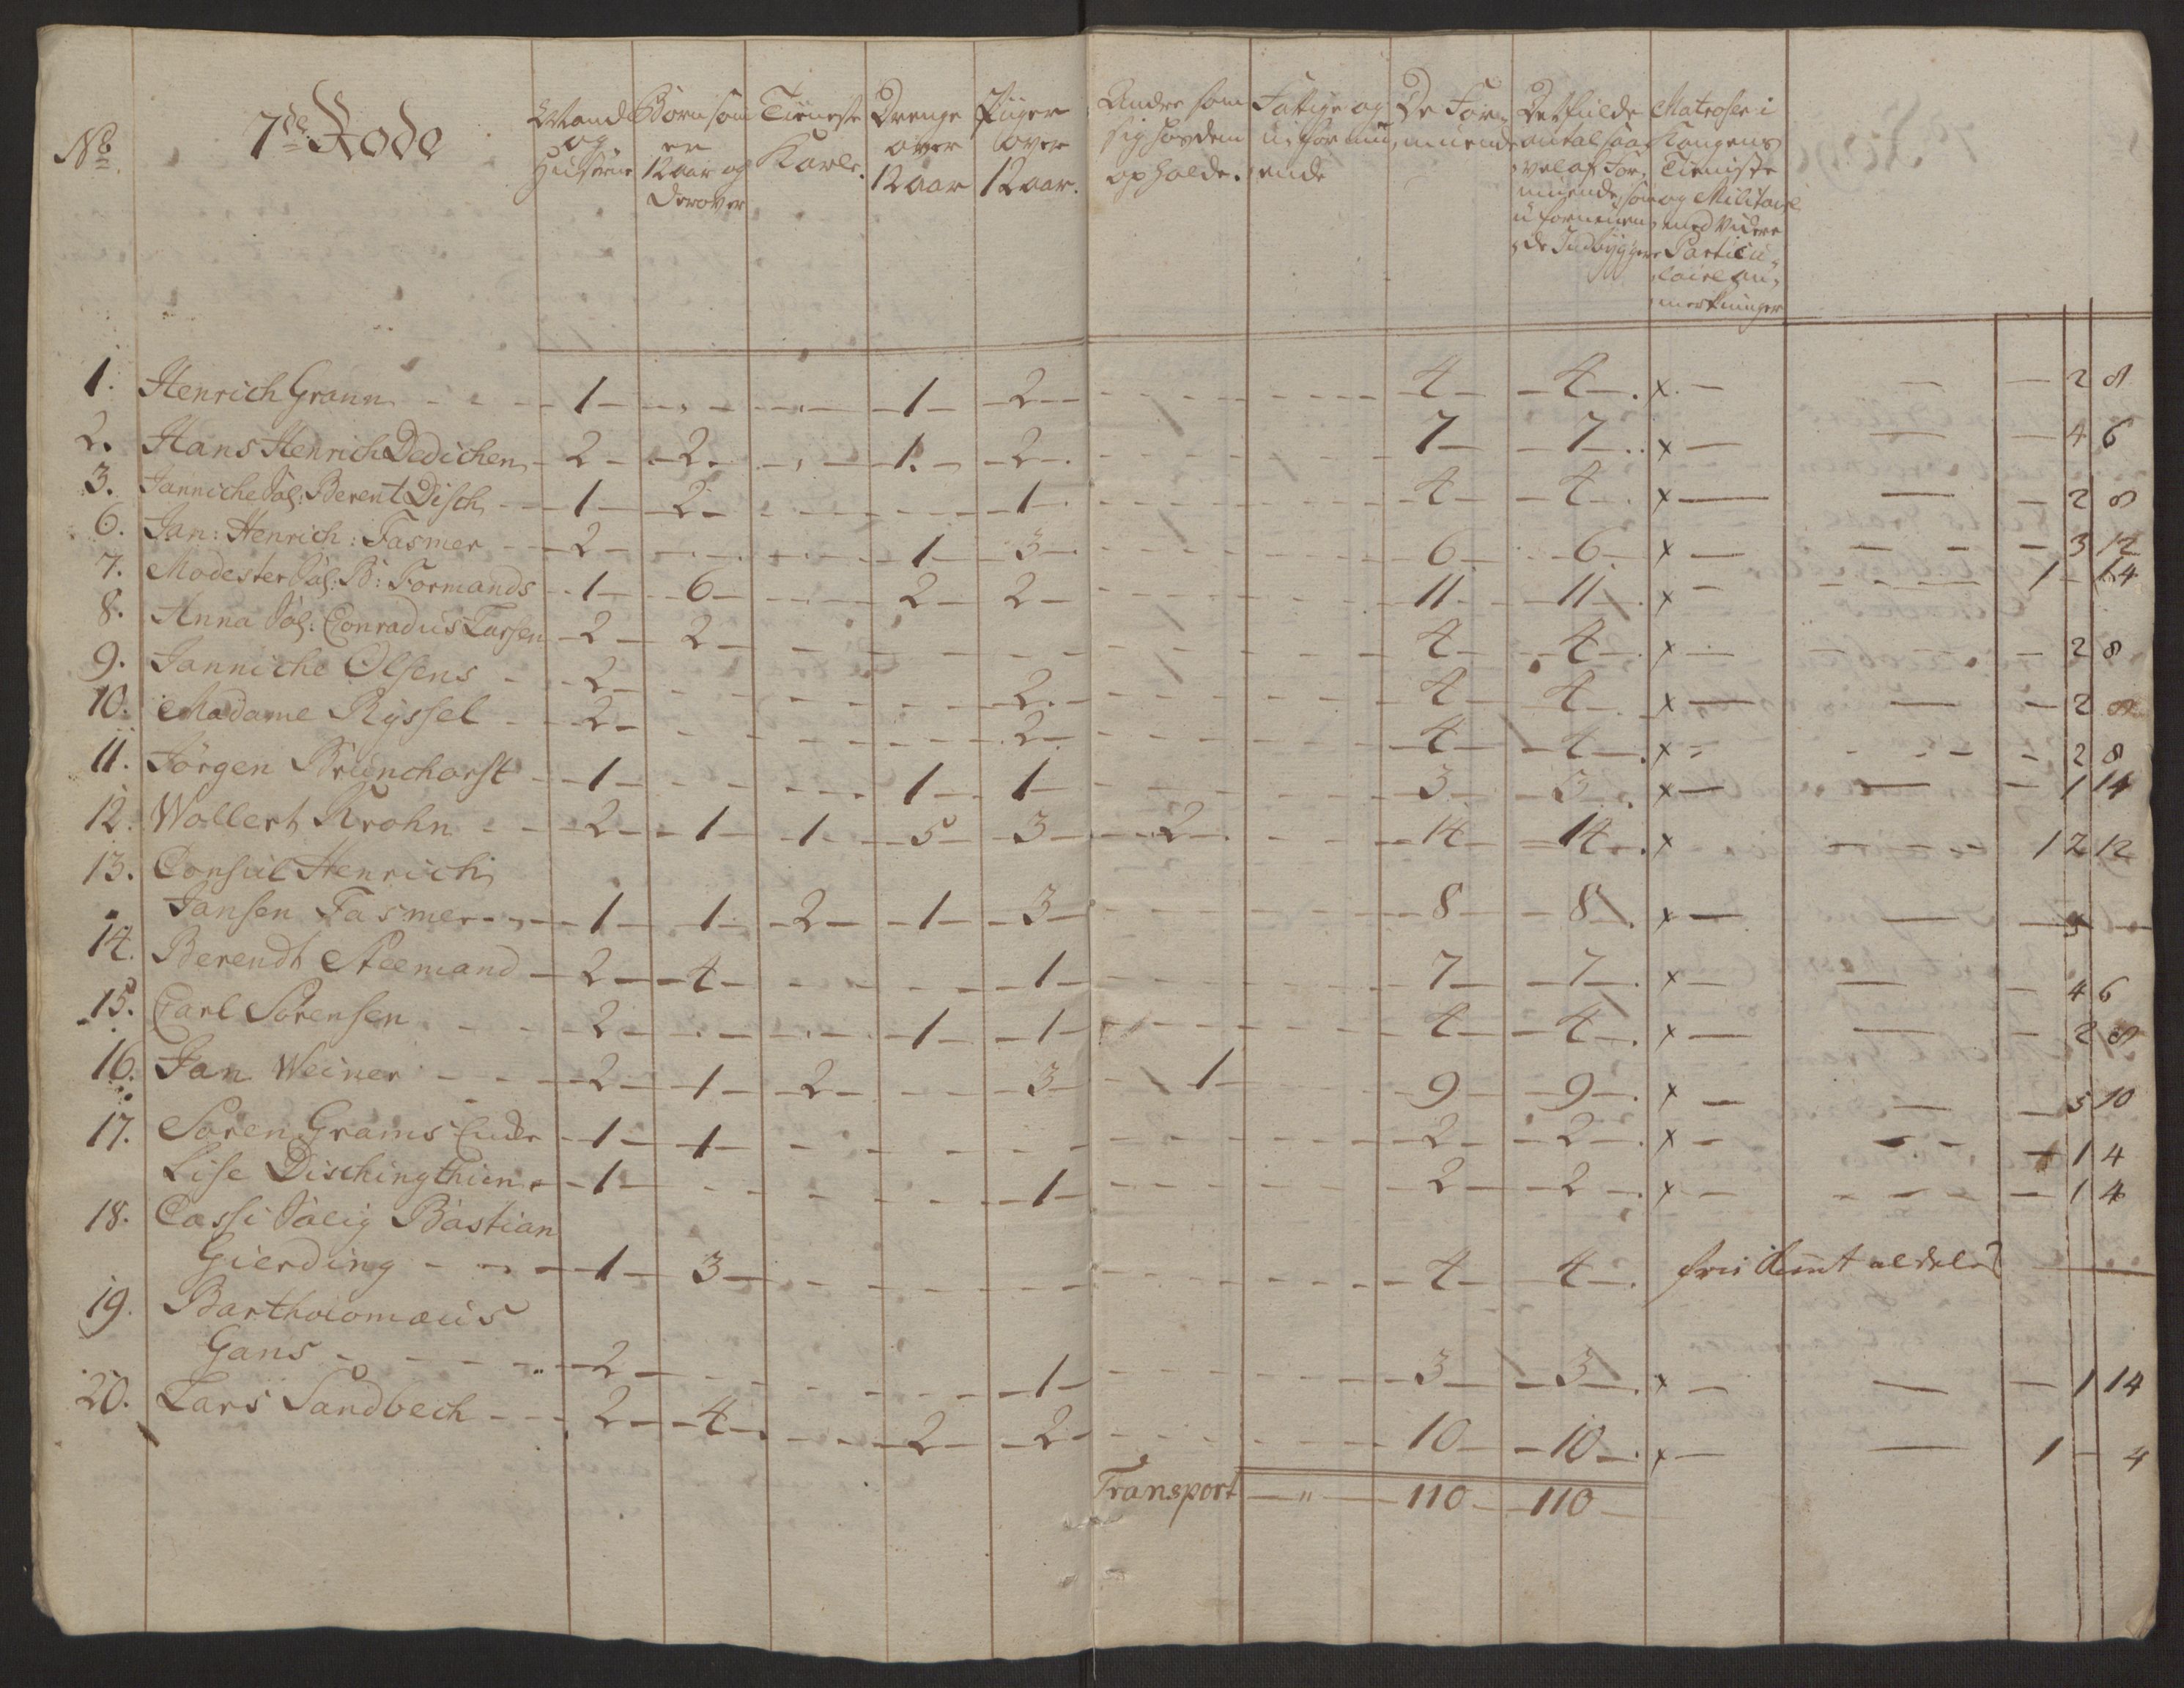 No 7de Rode
Mand og Hustrue
Børn som er 12 aar og derover
Tieneste Karle.
Drenge over 12 aar
Piiger over 12 aar.
Andre som sig hos dem opholde.
Fattige og uformuende
De Formuende
Det fulde antal saavel af Formuende, som uformuende Indbyggere
Matroser i Kongens Tieniste og Militaire med videre Particulaire anmerkninger
1. Henrich Grann - - - 1 - - - 1 - 2 - - 4 - 4 - x - 2 8
2. Hans Henrich Dedichen - 2 - 2 - - 1. - 2 - 7 - 7 - x - 4 6
3. Janniche Sal: Berent Disch - 1 - 2 - - - 1 - 4 - 4 - x - 2 8
6. Jan: Henrich: Fasmer - 2 - - - 1 - 3 - 6 - 6 - x - 3 12
7. Modester Sal: B: Formands - 1 - 6 - - 2 - 2 - 11 - 11 - x - 1 - 14
8. Anna Sal: Conradus Larsen - 2 - 2 - - - 4 - 4 - x - 2 8
9. Janniche Olsens - 2 - - - 2 - 4 - 4 - x - 2 8
10. Madame Ryssel - 2 - - - 2 - 4 - 4 - x - 2 8
11. Jørgen Brunchorst - 1 - - - 1 - 1 - 3 - 3 - x - 1 14
12. Wollert Krohn - - 2 - 1 - 1 - 5 - 3 - 2 - 14 - 14 - x - 1 2 12
13. Consul Henrich
Jansen Fasmer - 1 - 1 - 2 - 1 - 3 - 8 - 8 - x - 5 -
14. Berendt Steemand - 2 - 4 - - - 1 - 7 - 7 - x - 4 6
15. Carl Sørensen - - 2 - - - 1 - 1 - 4 - 4 - x - 2 8
16. Jan Weiner - - 2 - 1 - 2 - - 3 - 1 - 9 - 9 - x - 5 10
17. Søren Grams Encke - 1 - 1 - - - 2 - 2 - x - 1 4
Lise Dischingthun - 1 - - - 1 - 2 - 2 - x - 1 4
18. Cassi Salig Bastian
Gierding - - - 1 - 3 - - - 4 - 4 -
19. Bartholomæus
Gans - - - 2 - - - 1 - 3 - 3 - x - 1 14
20. Lars Sandbech - - 2 - 4 - - 2 - 2 - 10 - 10 - x - 1 - 4
Transport - " - 110 - 110 -